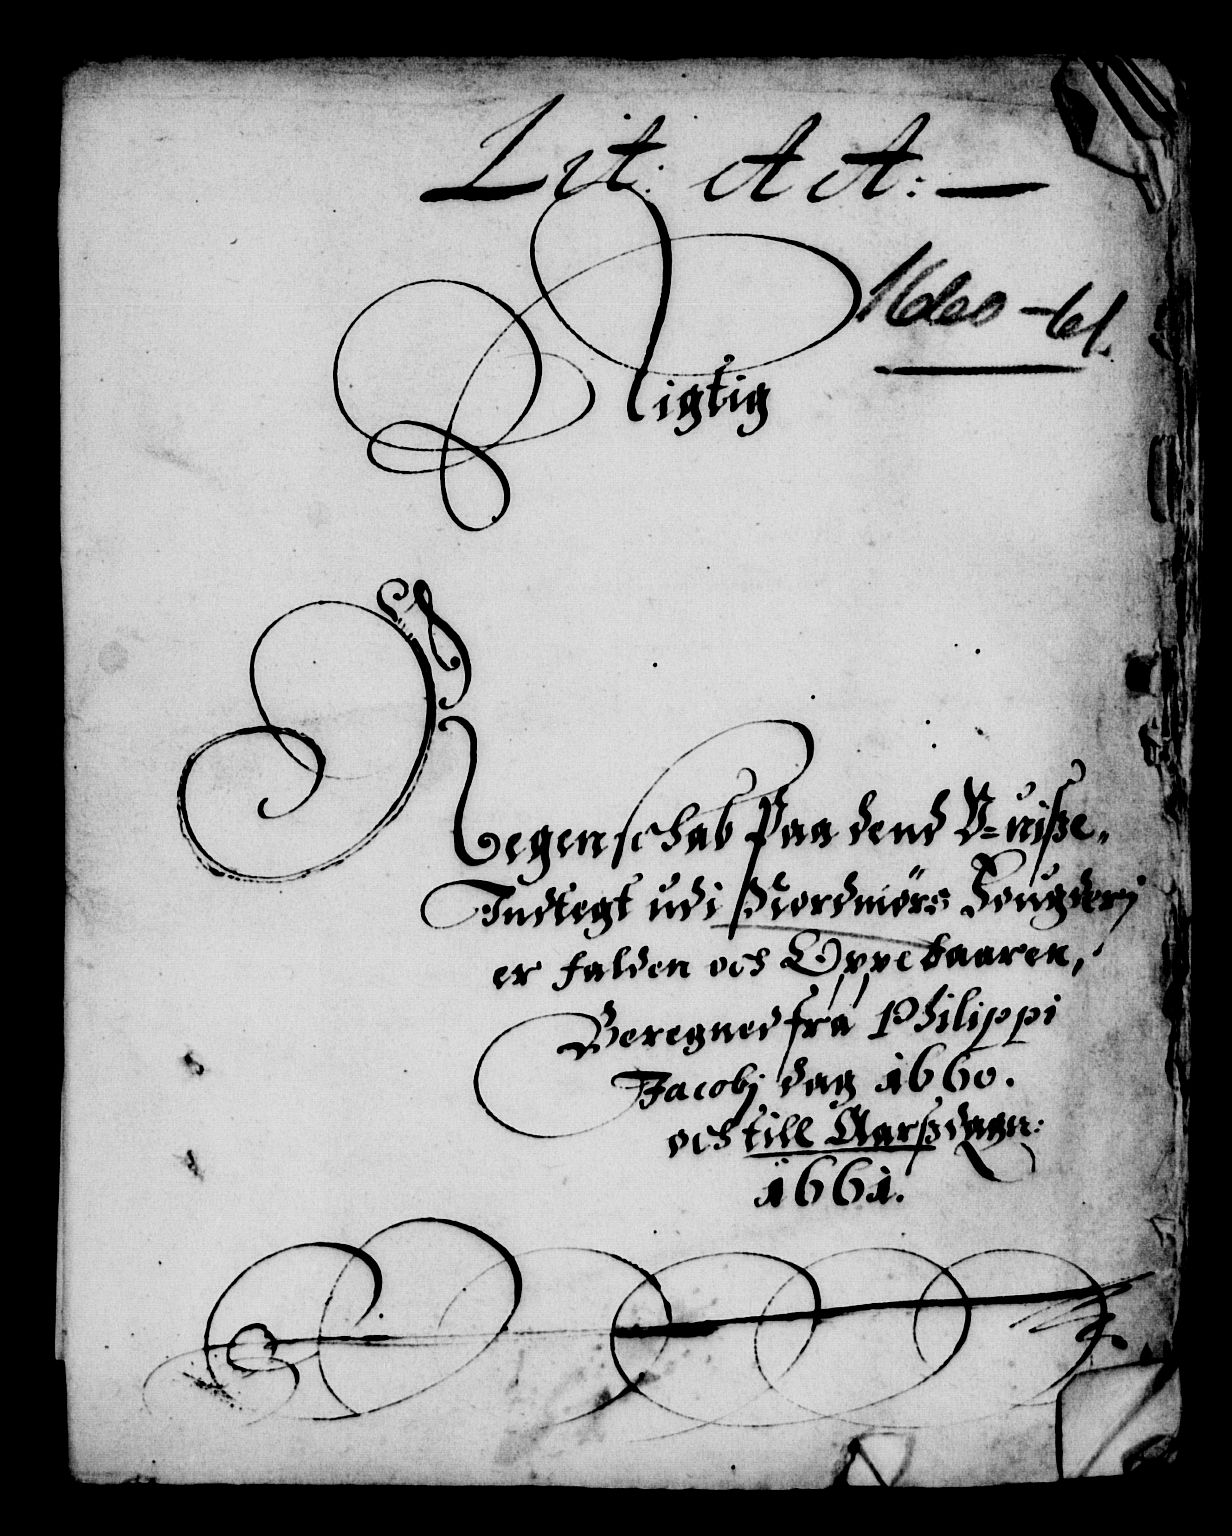 Lit: A A: —
1660 – 61.
Rigtig
Regenschab Paa dend V=uiße,
Indtegt udi Nordmørs Fougderj
er falden och Oppebaaren,
Beregned fra Philippi
Jacobj dag 1660.
och till Aarßdagn:
1661.